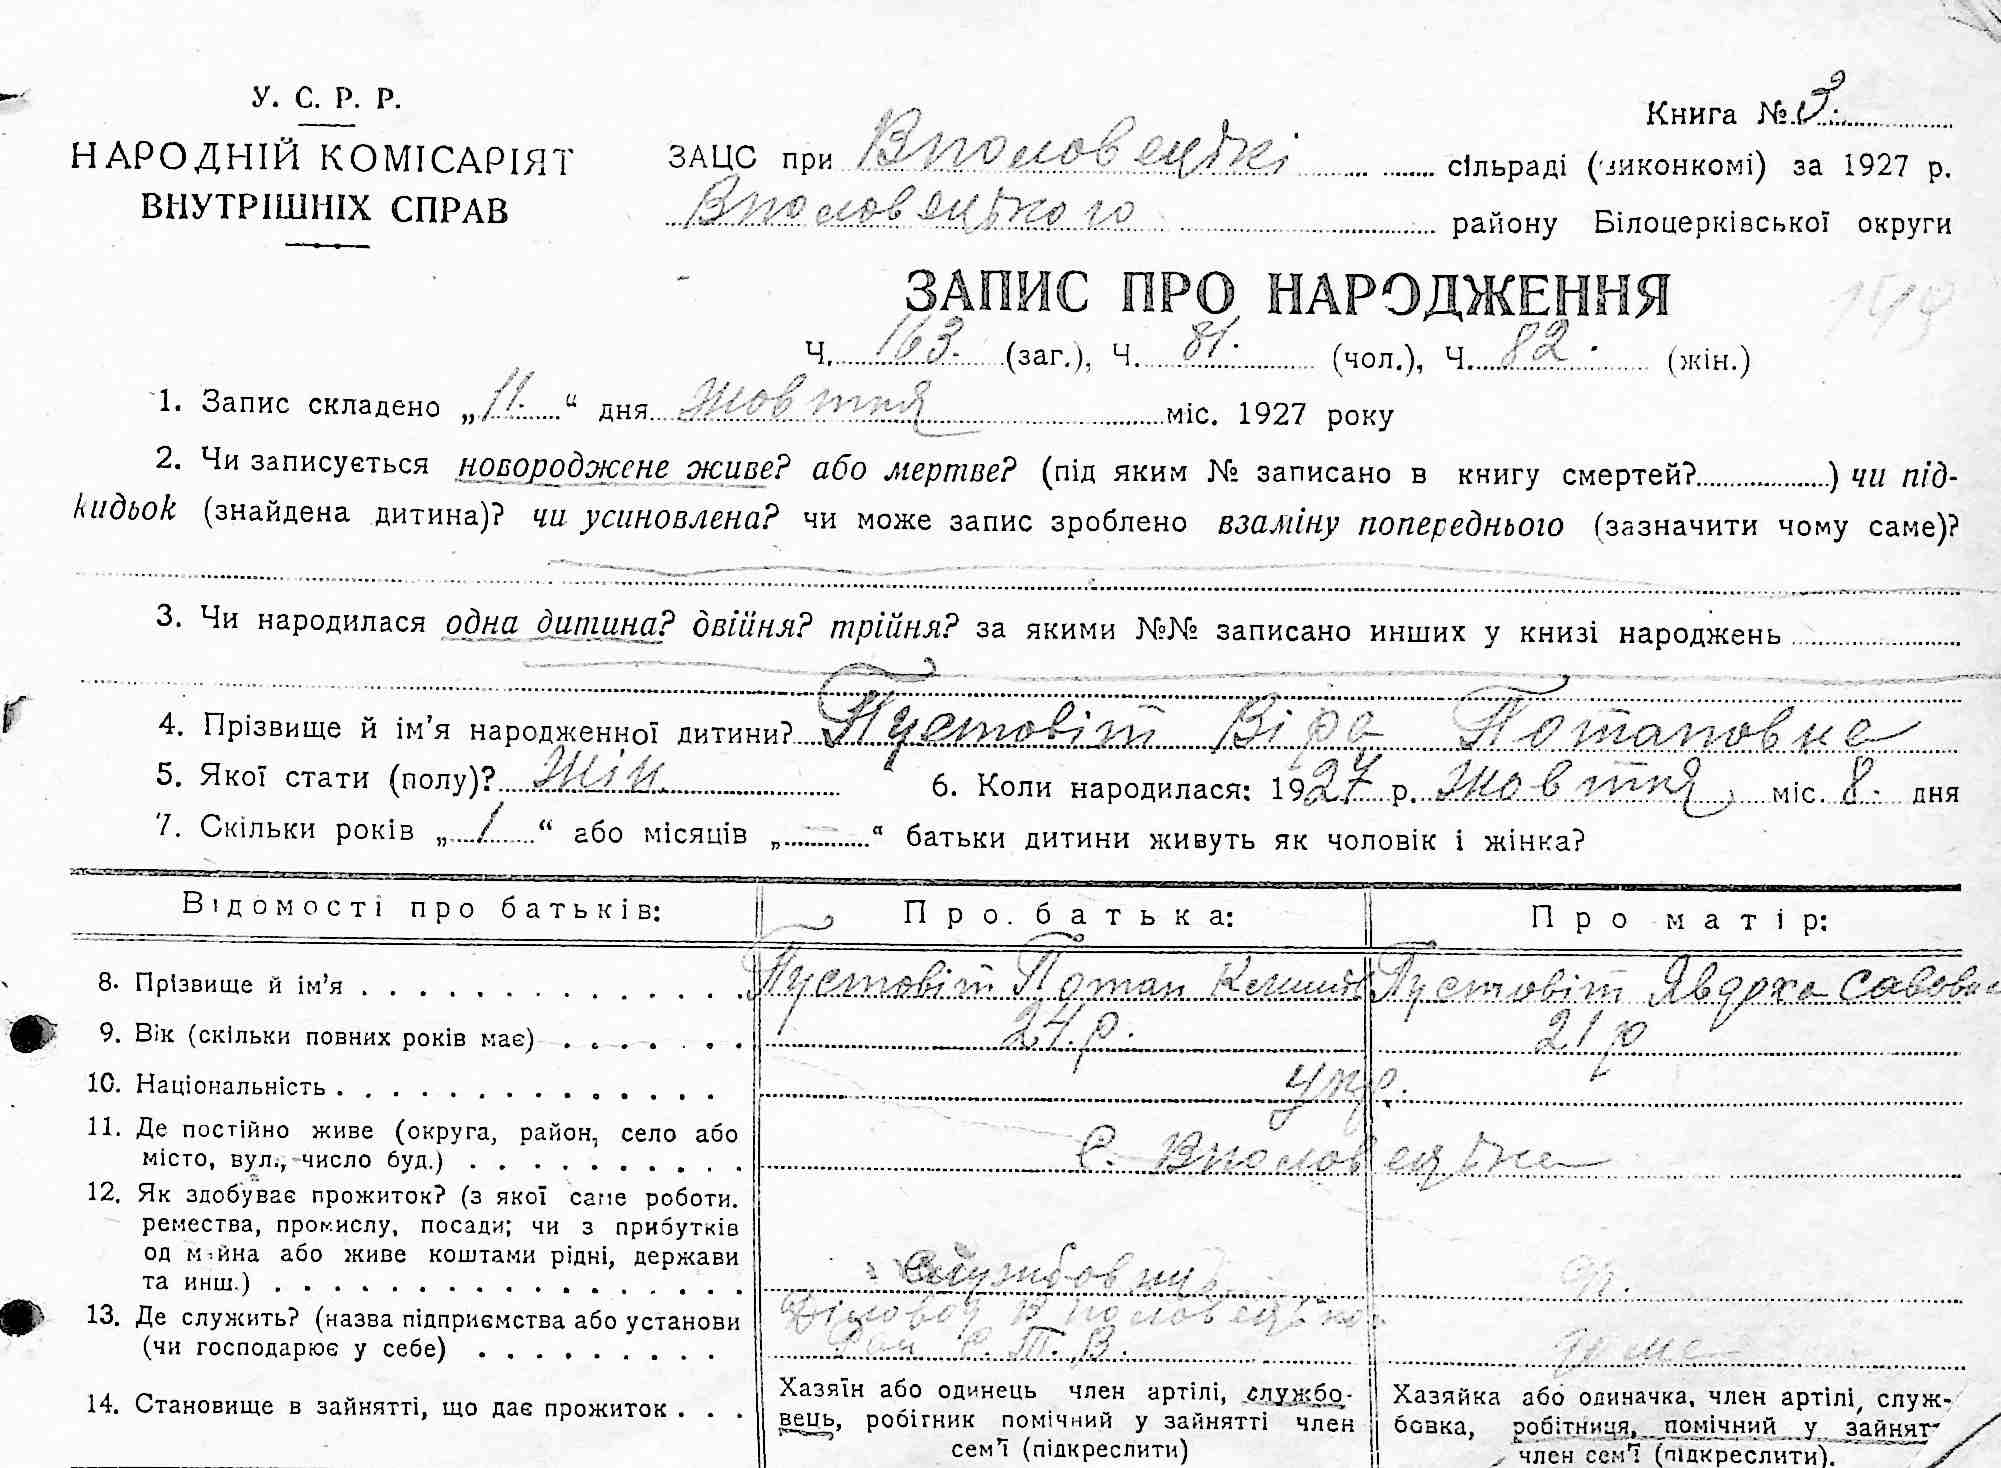 У. С. Р. Р.
НАРОДНІЙ КОМІСАРІЯТ
ВНУТРІШНІХ СПРАВ
Книга № 3.
ЗАЦС при Вполовецькі сільраді (виконкомі) за 1927 р.
Вполовецького району Білоцерківської округи
ЗАПИС ПРО НАРОДЖЕННЯ
Ч. 163. (заг.), Ч. 81. (чол.), Ч. 82. (жін.)
1. Запис складено „11.“ дня жовтня міс. 1927 року
2. Чи записується новороджене живе? або мертве? (під яким № записано в книгу смертей?) чи під-
кидьок (знайдена дитина)? чи усиновлена? чи може запис зроблено взаміну попереднього (зазначити чому саме)?
3. Чи народилася одна дитина? двійня? трійня? за якими №№ записано инших у книзі народжень
4. Прізвище й ім'я народженної дитини? Пустовіт Віра Потаповна
5. Якої стати (полу)? Жін. 6. Коли народилася: 1927 р. жовтня міс. 8. дня
7. Скільки років „1“ або місяців „—“ батьки дитини живуть як чоловік і жінка?
Відомості про батьків: Про батька: Про матір:
8. Прізвище й ім'я Пустовіт Потап Пустовіт Явдоха
9. Вік (скільки повних років має) 24.р. 21р
10. Національність укр.
11. Де постійно живе (округа, район, село або
місто, вул., число буд.) с. Вполовецьке
12. Як здобуває прожиток? (з якої саме роботи.
ремества, промислу, посади; чи з прибутків
од майна або живе коштами рідні, держави
та инш.) Службовець
13. Де служить? (назва підприємства або установи Діловод Вполовецької
(чи господарює у себе) С. Т. В.
14. Становище в зайнятті, що дає прожиток
Хазяїн або одинець член артілі, службо-
вець, робітник помічний у зайнятті член
сем'ї (підкреслити)
Хазяйка або одиначка, член артілі, служ-
бовка, робітниця, помічний у зайнят
член сем'ї (підкреслити).